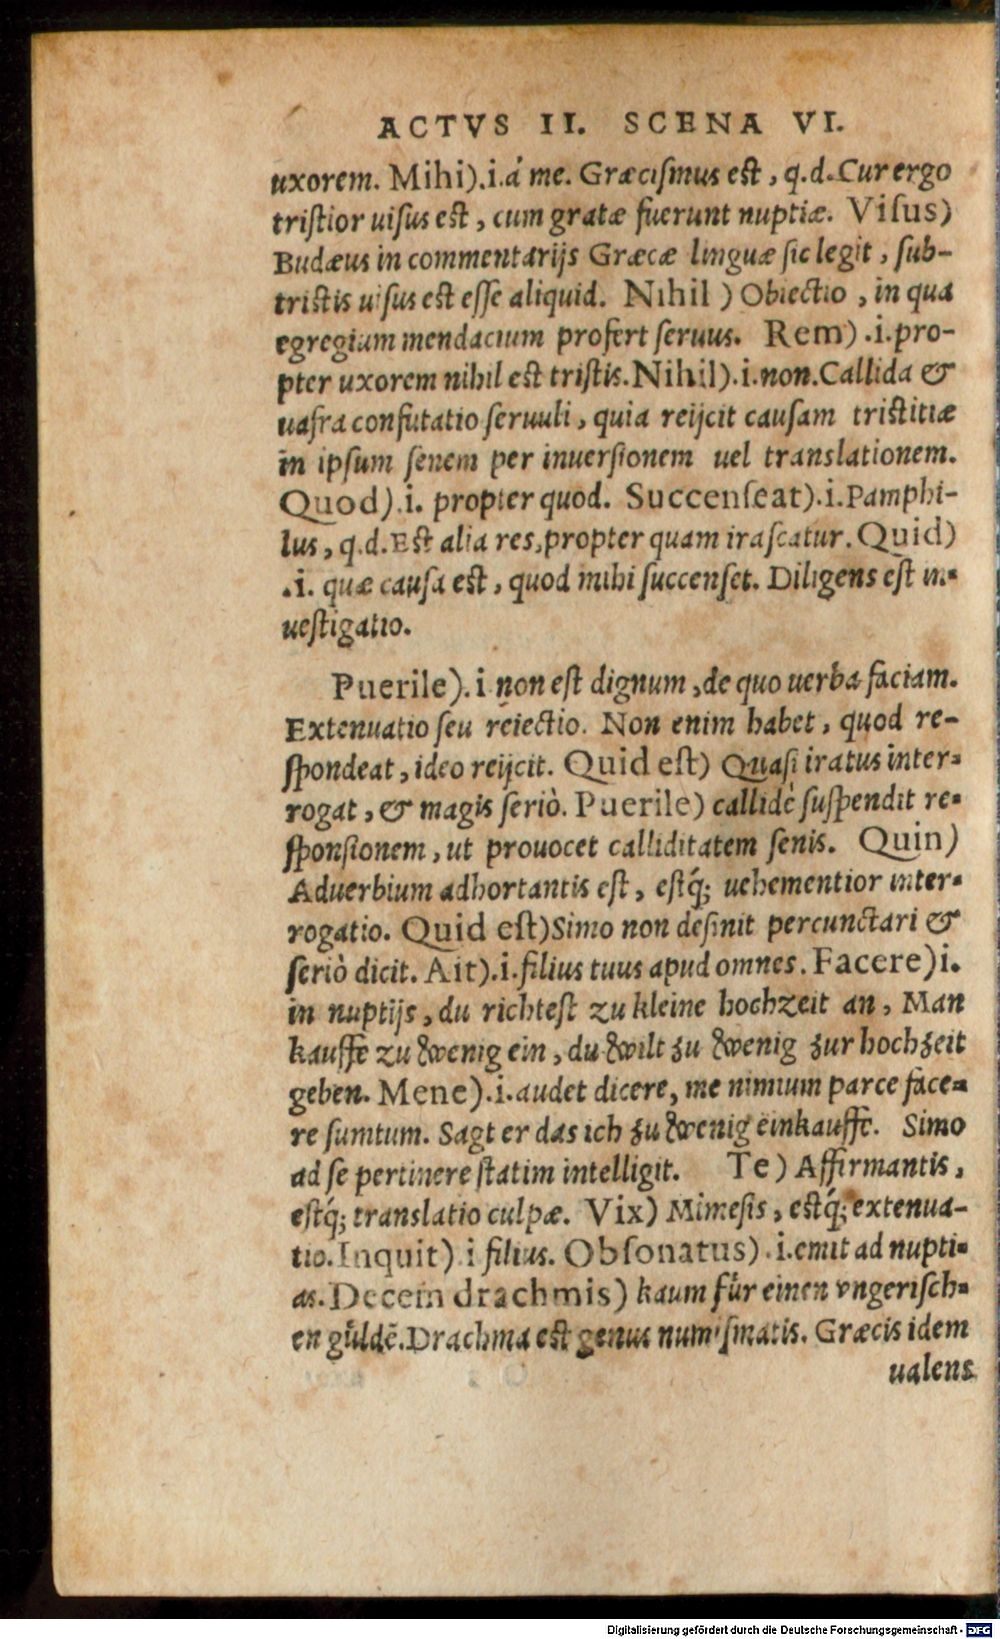 ACTVS II. SCENA VI.
uxorem. Mihi).i.á me. Græcismus est, q.d.Cur ergo
tristior uisus est, cum gratæ fuerunt nuptiæ. Visus)
Budæus in commentarijs Græcæ linguæ sic legit, sub-
tristis uisus est esse aliquid. Nihil ) Obiectio, in qua
egregium mendacium profert seruus. Rem) .i.pro-
pter uxorem nihil est tristis.Nihil).i.non.Callida &
uafra confutatio seruuli, quia reijcit causam tristitiæ
in ipsum senem per inuersionem uel translationem.
Quod).i. propter quod. Succenseat).i.Pamphi-
lus, q.d.Est alia res,propter quam irascatur.Quid)
.i. quæ causa est, quod mihi succenset. Diligens est in-
uestigatio.
Puerile).i.non est dignum,de quo uerba faciam.
Extenuatio seu reiectio. Non enim habet, quod re-
spondeat, ideo reijcit. Quid est) Quasi iratus inter-
rogat, & magis seriò. Puerile) callidè suspendit re-
sponsionem, ut prouocet calliditatem senis. Quin)
Aduerbium adhortantis est, estq́; uehementior inter-
rogatio. Quid est)Simo non desinit percunctari &
seriò dicit. Ait).i.filius tuus apud omnes. Facere)i.
in nuptijs, du richtest zu kleine hochzeit an, Man
kauffe zu wenig ein, du wilt zu wenig zur hochzeit
geben. Mene).i.audet dicere, me nimium parce face-
re sumtum. Sagt er das ich zu wenig einkauffe. Simo
ad se pertinere statim intelligit. Te) Affirmantis,
estq́; translatio culpæ. Vix) Mimesis, estq́; extenua-
tio.Inquit).i filius. Obsonatus).i.emit ad nupti-
as.Decem drachmis) kaum für einen vngerisch-
en güldē.Drachma est genus numismatis. Græcis idem
ualens
Digitalisierung gefördert durch die Deutsche Forschungsgemeinschaft - DFG